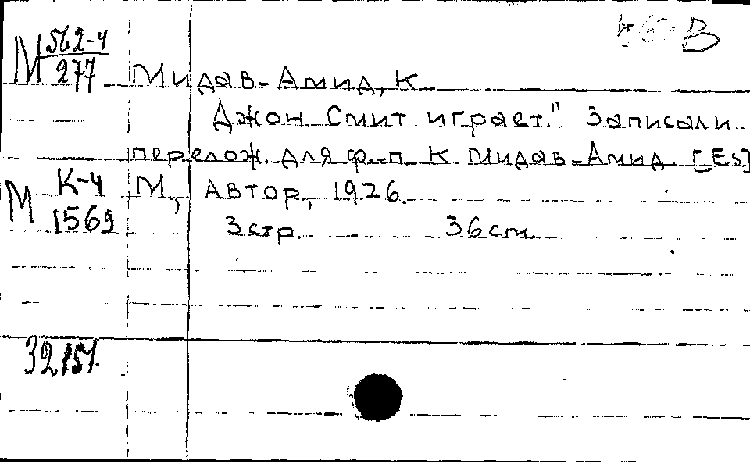 В
М 562-4
277
Мидав-Амид, К.
Джон Смит играет." Записали
перелож. для ф.-п. К. Мидав-Амид [Es]
М К-4
1569
М., Автор, 1926.
3 стр. 36 см.
32151.